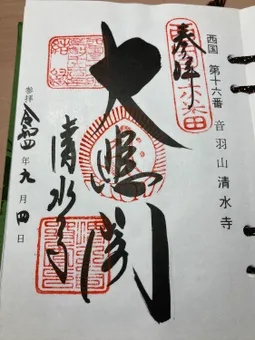 西国 第十六番 音羽山 清水寺
奉拝
大悲閣
清水寺
結縁
参拝 令和四年九月四日